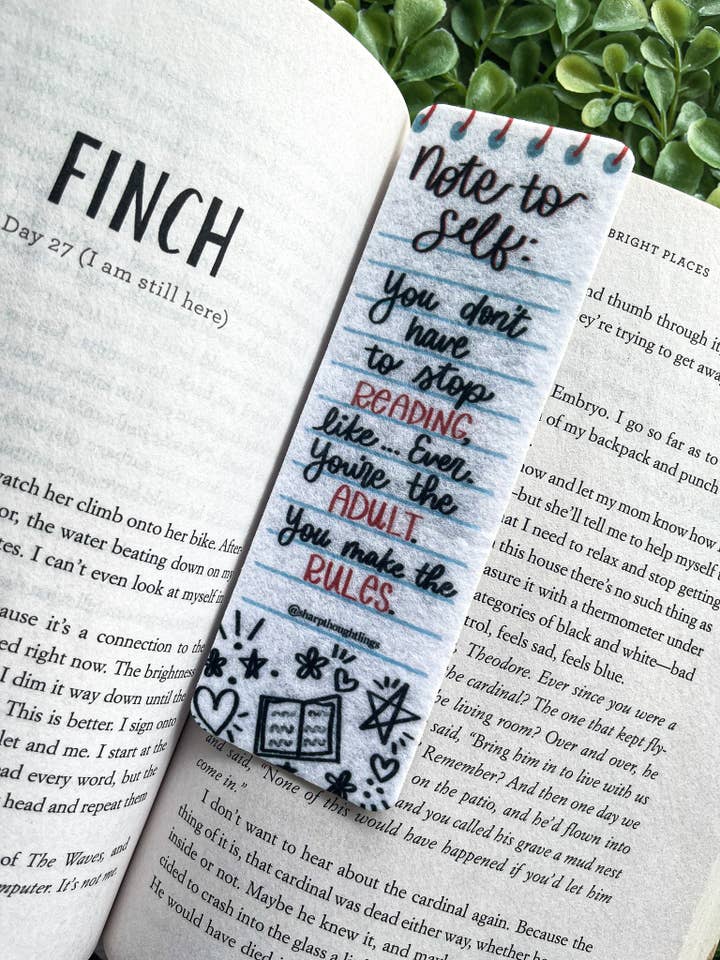 FINCH
Day 27 (I am still here)
watch her climb onto her bike. After-
or, the water beating down on my
I can't even look at myself in
ause it's a connection to the
ed right now. The brightness
I dim it way down until the
This is better. I sign onto
let and me. I start at the
ad every word, but the
head and repeat them
of The Waves, and
mputer. It's not me.
Note to
self:
You don't
have
to stop
READING,
like... Ever.
You're the
ADULT.
You make the
RULES.
@sharpthoughtlings
BRIGHT PLACES
nd thumb through it
ey're trying to get away
Embryo. I go so far as to
of my backpack and punch
now and let my mom know how
—but she'll tell me to help myself
at I need to relax and stop getting
this house there's no such thing as
asure it with a thermometer under
ategories of black and white—bad
trol, feels sad, feels blue.
Theodore. Ever since you were a
the cardinal? The one that kept fly-
he living room? Over and over, he
said, "Bring him in to live with us
Remember? And then one day we
on the patio, and he'd flown into
and you called his grave a mud nest
and said, "None of this would have happened if you'd let him
come in."
I don't want to hear about the cardinal again. Because the
thing of it is, that cardinal was dead either way, whether he
inside or not. Maybe he knew it, and maybe
cided to crash into the glass a li
He would have died in